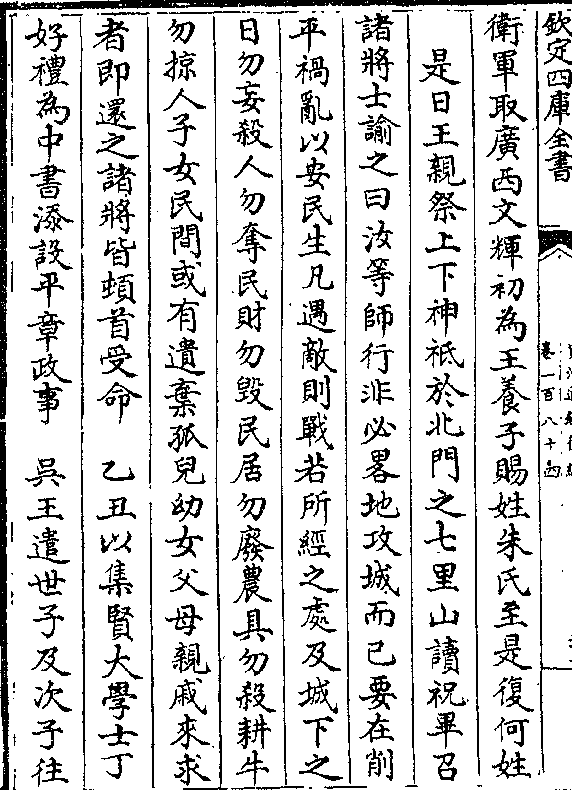 欽定四庫全書
卷一百八十四
衛軍取廣西文輝初為王養子賜姓朱氏至是復何姓
是日王親祭上下神祇於北門之七里山讀祝畢召
諸將士諭之曰汝等師行非必畧地攻城而已要在削
平禍亂以安民生凡遇敵則戰若所經之處及城下之
日勿妄殺人勿奪民財勿毀民居勿廢農具勿殺耕牛
勿掠人子女民間或有遺棄孤兒幼女父母親戚來求
者即還之諸將皆頓首受命　乙丑以集賢大學士丁
好禮為中書添設平章政事　吳王遣世子及次子往